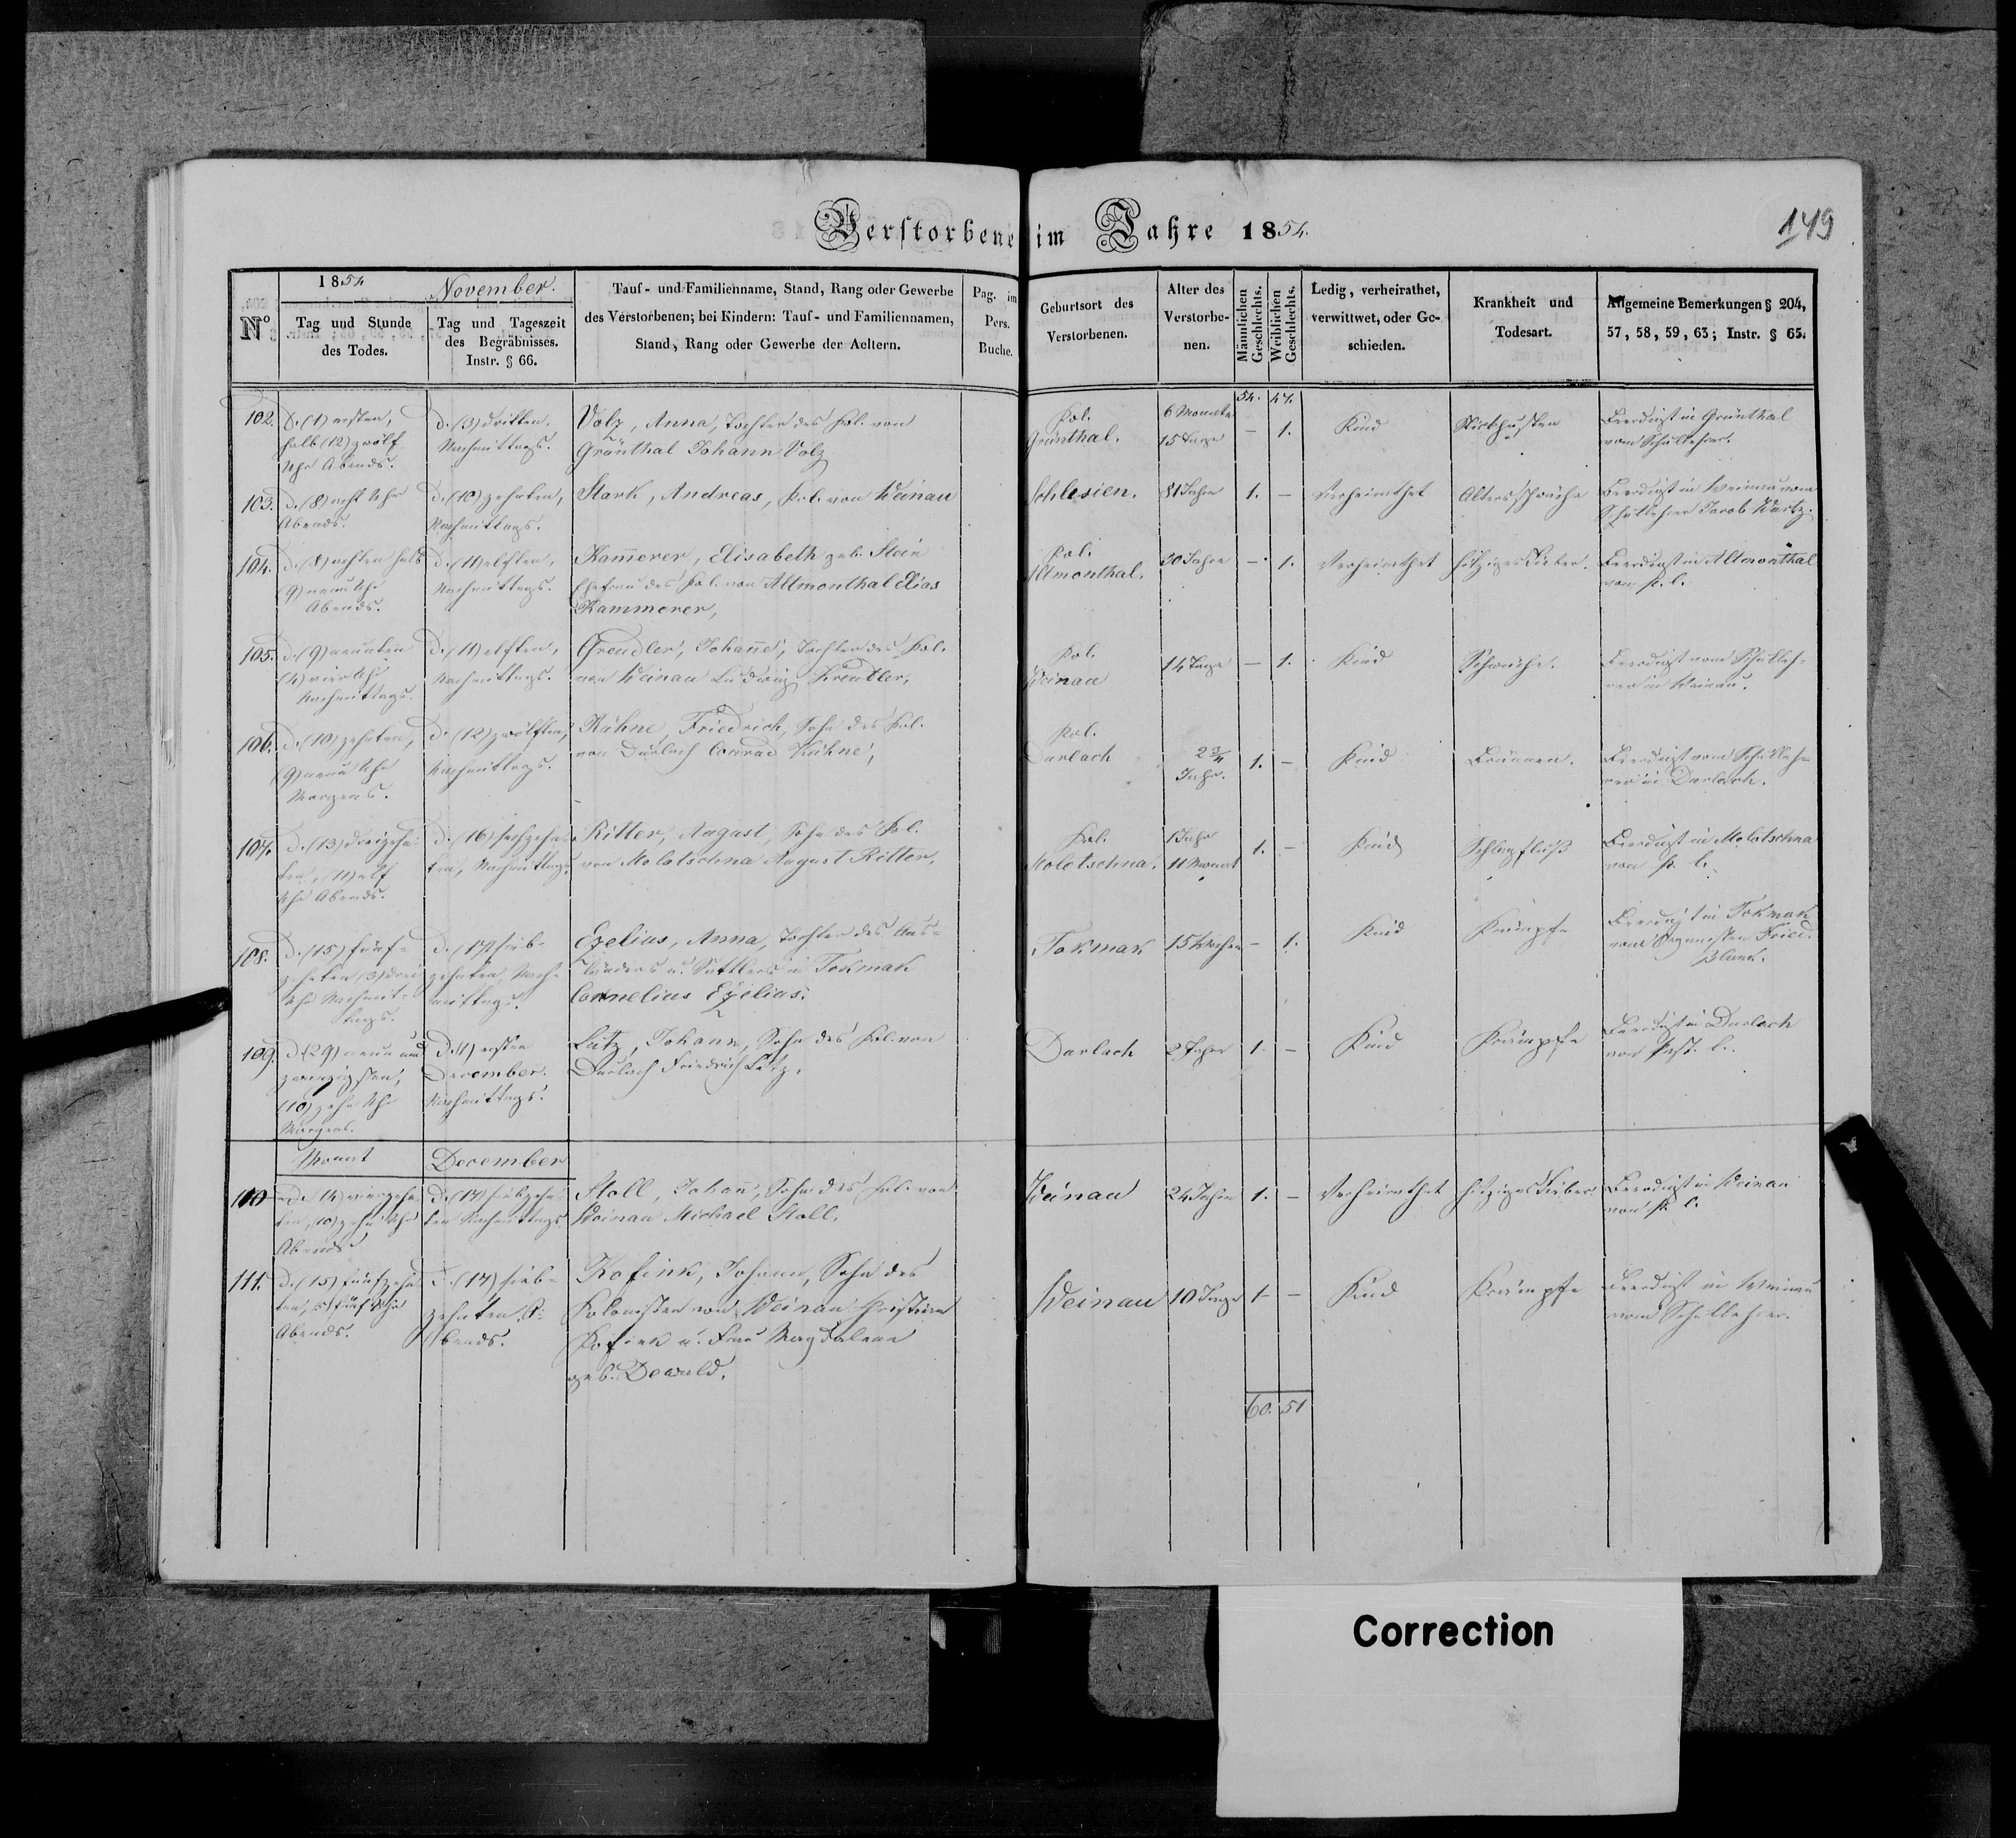 Verstorbene im Jahre 1854.
149
No
1854 November.
Tag und Stunde
des Todes.
Tag und Tageszeit
des Begräbnisses.
Instr. § 66.
Tauf- und Familienname, Stand, Rang oder Gewerbe
des Verstorbenen; bei Kindern: Tauf- und Familiennamen,
Stand, Rang oder Gewerbe der Aeltern.
Pag. im
Pers.
Buche.
Geburtsort des
Verstorbenen.
Alter des
Verstorbe-
nen.
Männlichen
Geschlechts.
Weiblichen
Geschlechts.
Ledig, verheirathet,
verwittwet, oder Ge-
schieden.
Krankheit und
Todesart.
Allgemeine Bemerkungen § 204,
57, 58, 59, 63; Instr. § 65.
54. 47.
102.
D. (1) ersten,
halb (12) zwölf
Uhr Abends.
d. (3) dritten.
Nachmittags.
Volz, Anna, Tochter des Kol. von
Grünthal Johann Volz
Kol.
Grünthal.
6 Monate
15 Tage
–
1.
Kind
Stickhusten
Beerdigt in Grünthal
vom Schullehrer.
103.
D. (8) acht Uhr
Abends.
d. (10) zehnten,
Nachmittags.
Stark, Andreas, Kol. von Weinau
Schlesien.
81 Jahre
1.
–
Verheirathet
Altersschwäche
Beerdigt in Weinau vom
Schullehrer Jacob Wartz.
104.
D. (8) achten halb
(9) neun Uhr
Abends.
d. (11) elften,
Nachmittags.
Kam̄erer, Elisabeth geb. Stein
Ehefrau des Kol. von Altmonthal Elias
Kammerer,
Kol.
Altmonthal.
30 Jahre
–
1.
Verheirathet
hitziges Fieber.
Beerdigt in Altmonthal
von P. l.
105.
d. (9) neunten
(4) vier Uhr
Nachmittags.
d. (11) elften,
Nachmittags.
Greudler, Johan̄e, Tochter des Kol.
von Weinau Ludwig Kreutler,
Kol.
Weinau
14 Tage
–
1.
Kind
Schwäche.
Beerdigt vom Schulleh-
rer in Weinau.
106.
d. (10) zehnten,
(9) neun Uhr
Morgens.
d. (12) zwölften,
Nachmittags.
Kühne, Friedrich, Sohn des Kol.
von Durlach Conrad Kühne,
Kol.
Durlach
2 3/4
Jahr.
1.
–
Kind
Bräunen.
Beerdigt vom Schulleh-
rer in Durlach.
107.
d. (13) dreizehn-
ten, (11) elf
Uhr Abends.
d. (16) sechzehn-
ten, Nachmittags.
Ritter, August, Sohn des Kol.
von Molotschna August Ritter,
Kol.
Molotschna.
1 Jahr
11 Monat
1.
–
Kind
Schlagfluß
Beerdigt in Molotschna
von P. l.
108.
D. (15) fünf-
zehnten (3) drei
Uhr Nachmit-
tags.
d. (17) sieb-
zehnten, Nach-
mittags.
Ezelius, Anna, Tochter des Aus-
länders u. Sattlers in Tokmak
Cornelius Ezelius.
Tokmak
15 Wochen
–
1.
Kind
Krämpfe
Beerdigt in Tokmak
vom Organisten Fried.
Blank.
109.
D (29) neun und
zwanzigsten,
(10) zehn Uhr
Morgens.
D. (1) ersten
December.
Nachmittags.
Lutz, Johann, Sohn des Kol. von
Durlach Friedrich Lutz.
Durlach
2 Jahre
1.
–
Kind
Krämpfe
Beerdigt in Durlach
von Past. l.
Monat December
110
d. 14) vierzehn-
ten, (10) zehn Uhr
Abends
d. (17) siebzehn-
ten Nachmittags
Stoll, Johan̄, Sohn des Kol. von
Weinau Michael Stoll.
Weinau
24 Jahre
1.
–
Verheirathet
hitziges Fieber.
Beerdigt in Weinau
von P. l.
111.
d. (15) fünfzehn
ten, 5) fünf Uhr
Abends.
d. (17) sieb-
zehnten A-
bends.
Kofink, Johann, Sohn des
Kolonisten von Weinau Christian
Kofink u. Frau Magdalena
geb. Dewald.
Weinau
10 Tage
1
–
Kind
Krämpfe
Beerdigt in Weinau
vom Schullehrer.
60. 51
Correction